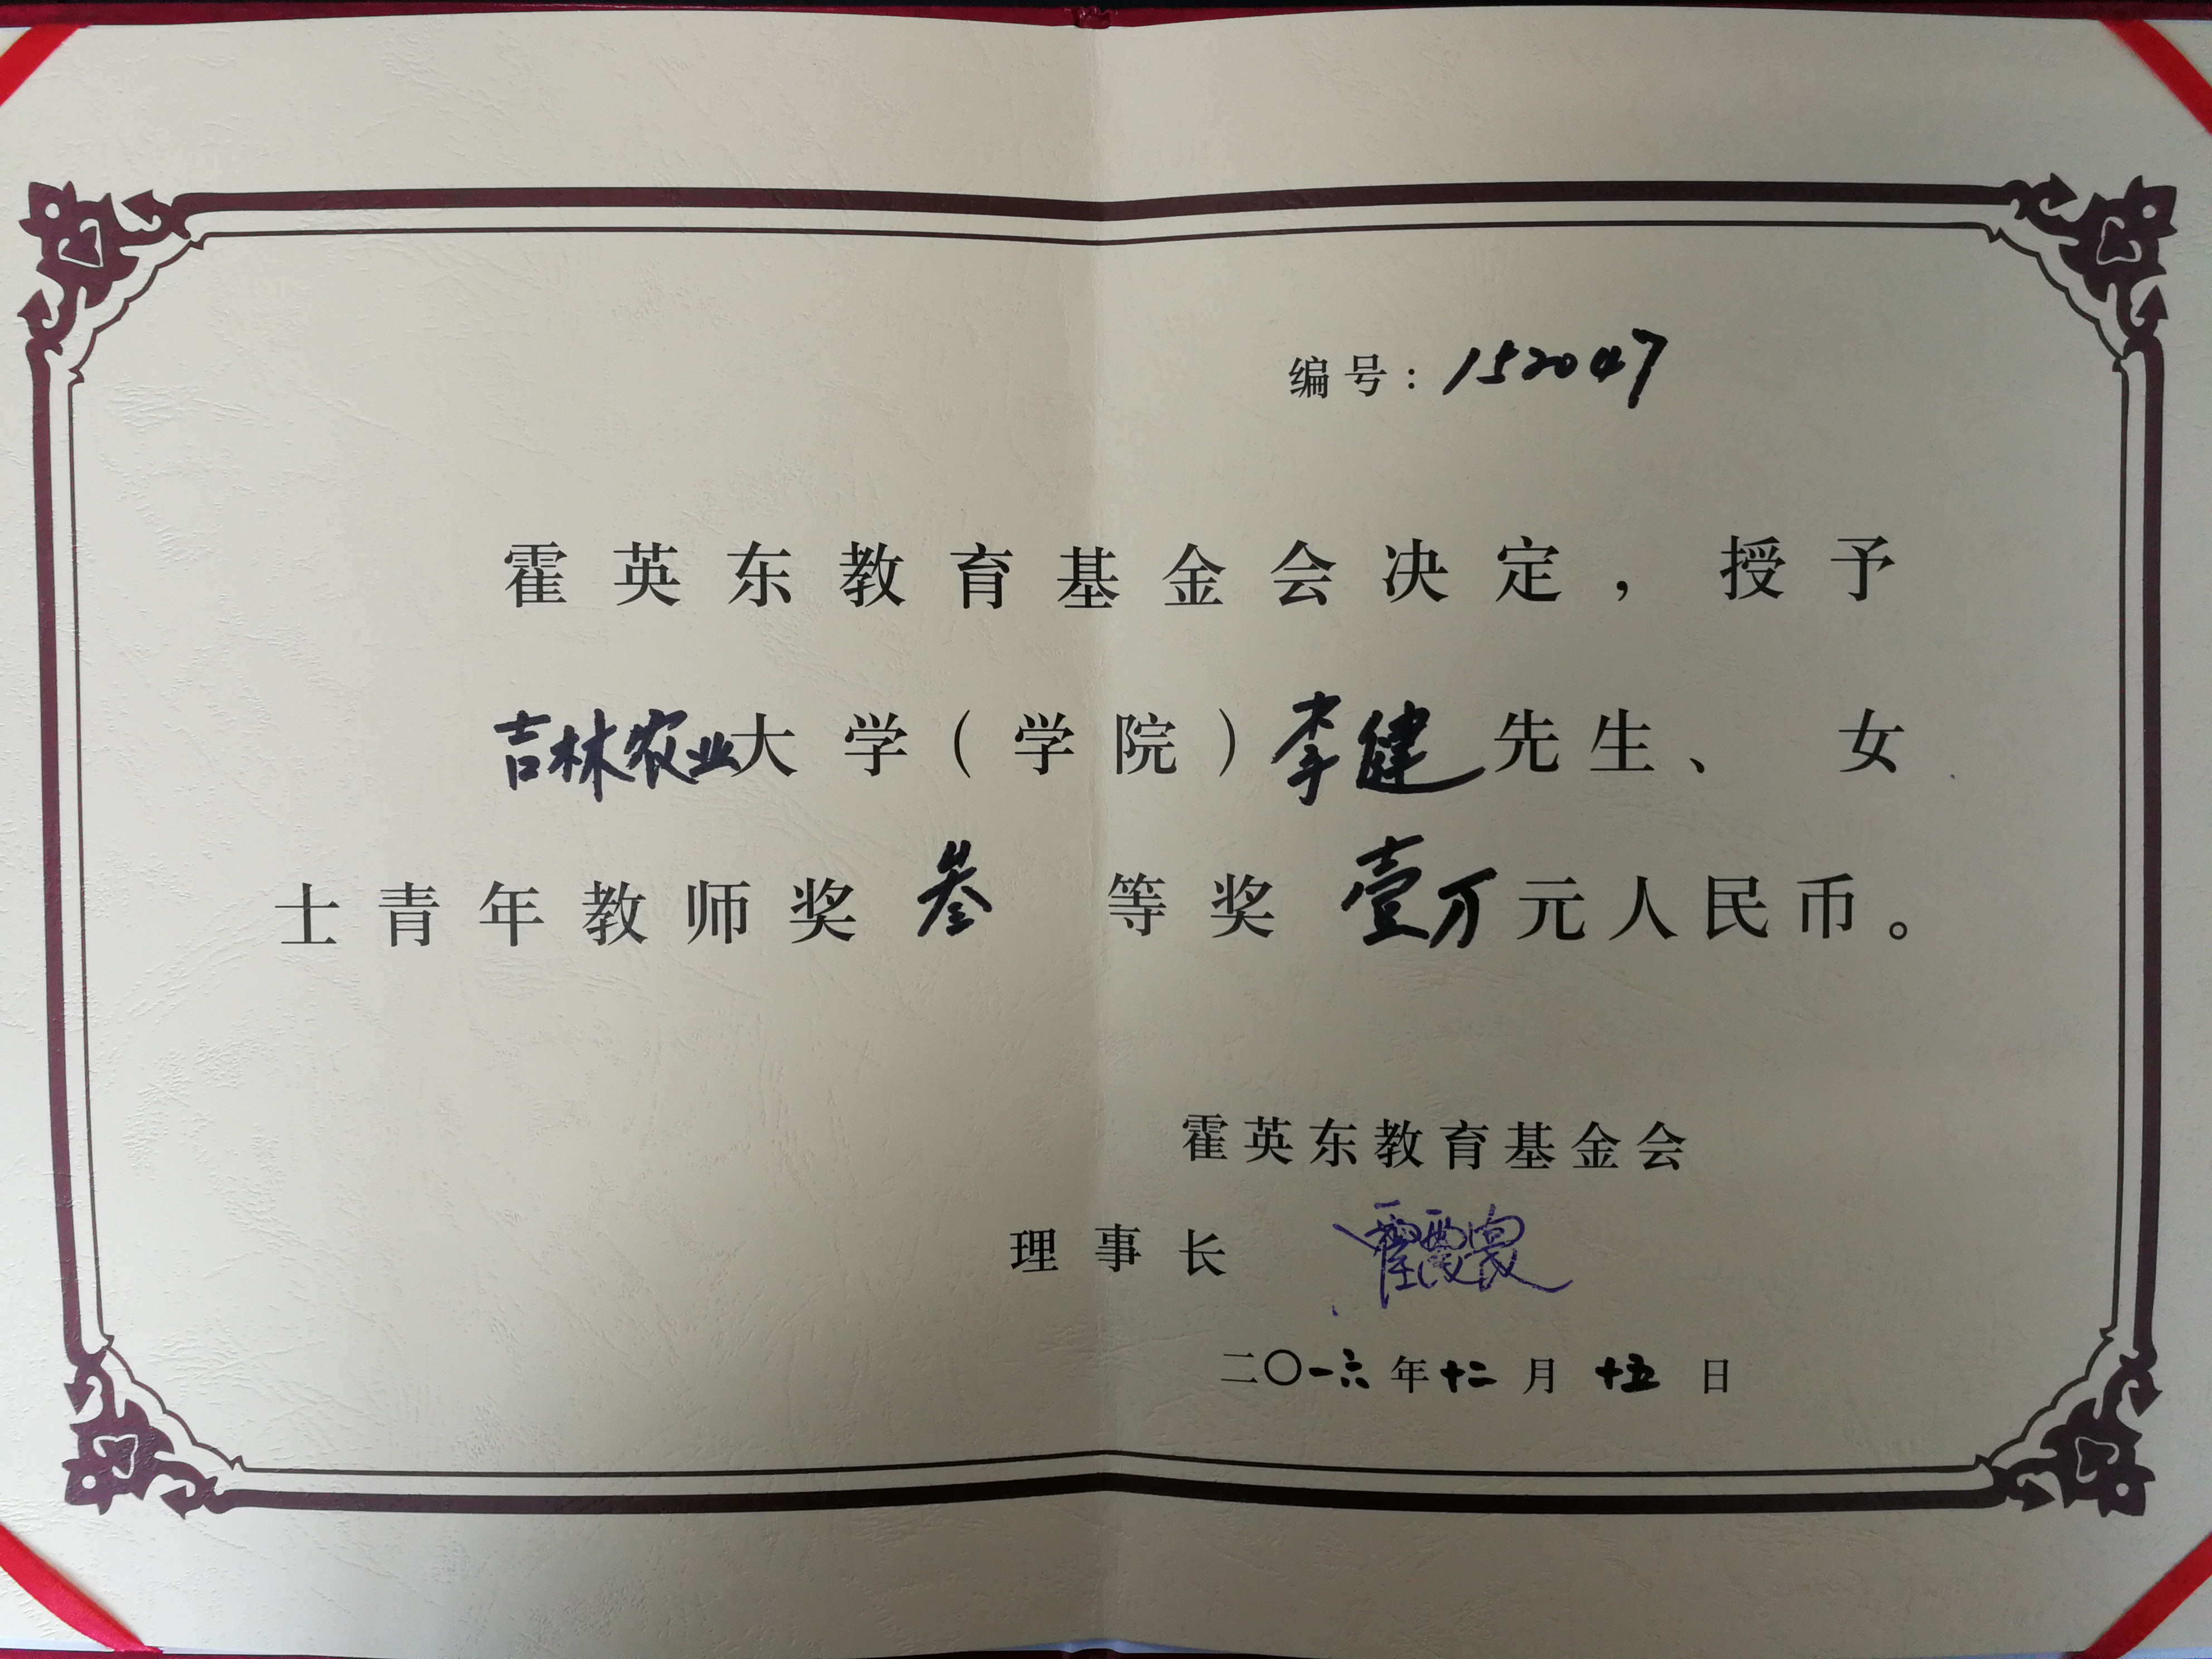 编号：152047
霍英东教育基金会决定，授予
吉林农业大学（学院）李健先生、女
士青年教师奖叁等奖壹万元人民币。
霍英东教育基金会
理事长 霍震寰
二〇一六年十二月十五日